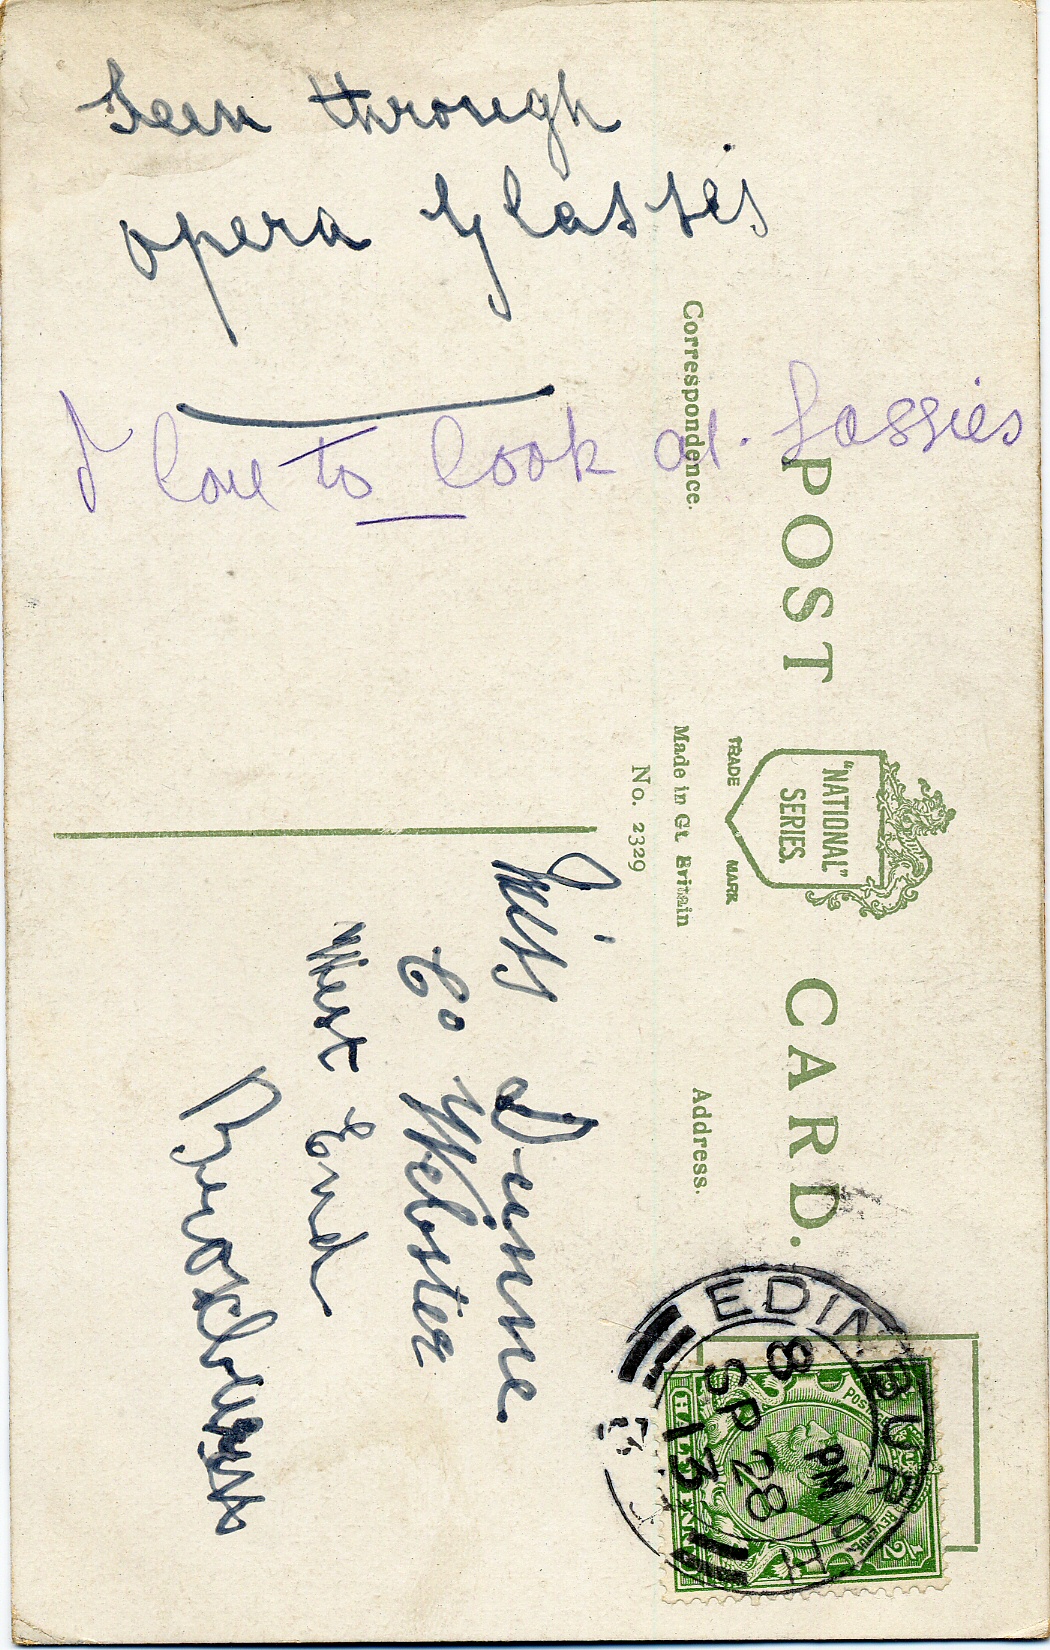 Seen through
opera Glasses
I love to look at Lassies
POST CARD.
"NATIONAL"
SERIES.
TRADE MARK
Correspondence.
Made in Gt. Britain
Address.
No. 2329
Miss Dunne.
Co Webster
West End
EDINBURGH
8 PM
SP 28
13
POSTAGE
REVENUE
HALFPENNY